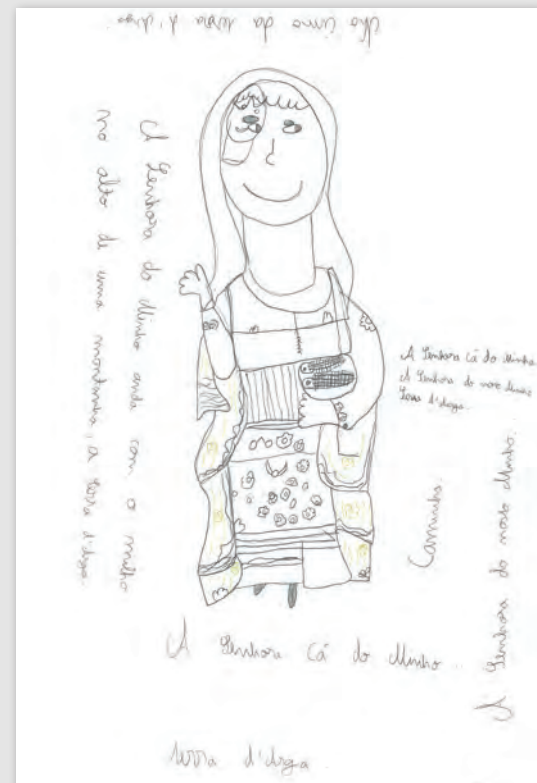 No cimo da serra d'arga.
A Senhora do Minho anda com o milho
no alto de uma montanha, a serra d'arga.
A Senhora Cá do Minho
A Senhora do nosso Minho
Serra d'Arga.
Caminha.
A Senhora do nosso Minho.
A Senhora Cá do Minho.
serra d'Arga